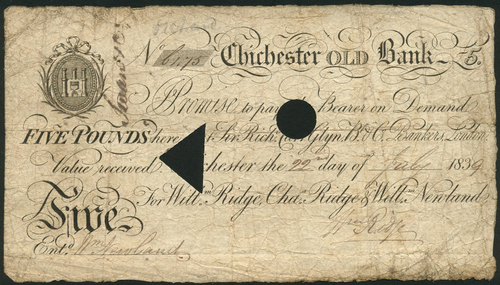 No 6175 Chichester OLD Bank £5.
I PROMISE to pay Bearer on Demand
FIVE POUNDS here Sir Rich. Glyn, B. & Co. Bankers, London
Value received chester the 22 day of July 1839
For Willm. Ridge, Chas. Ridge & Willm. Newland
Five
Wm Ridge
Entd. Wm Newland